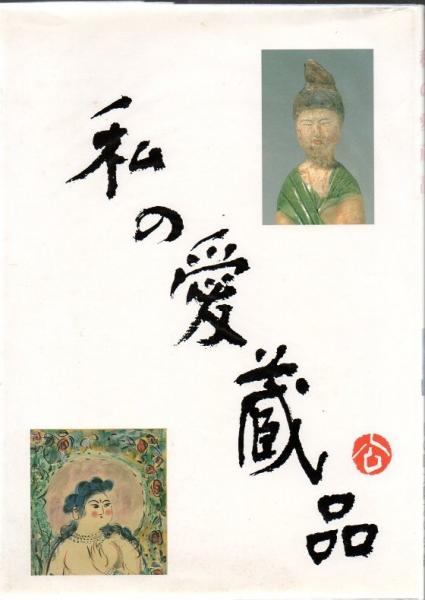 私の愛蔵品
公